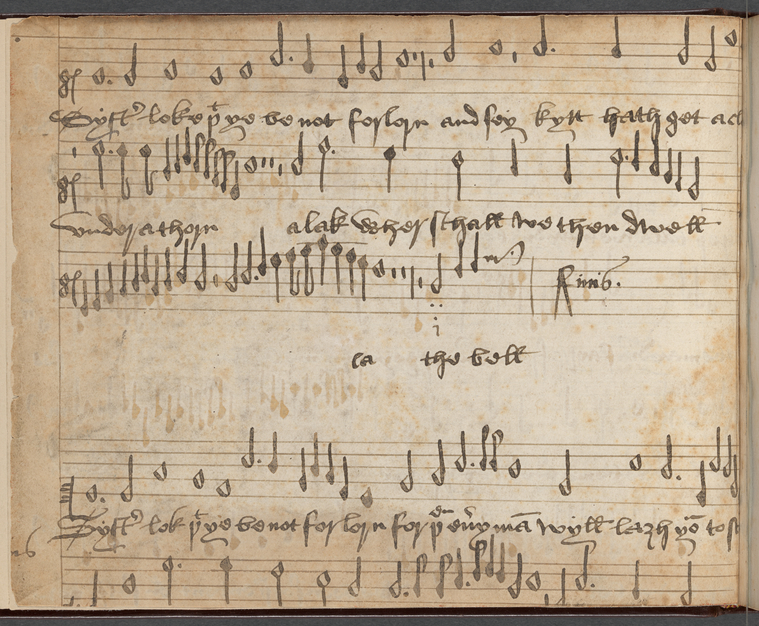 Syst͛ loke þ̄ ye be not forlorn and sey kytt hath get a cl
under a thorn alak wher schall we then dwell
Finis.
la the bell
Syst͛ lok þ̄ ye be not forlorn for eu̾y mā wyll lawh yō to s